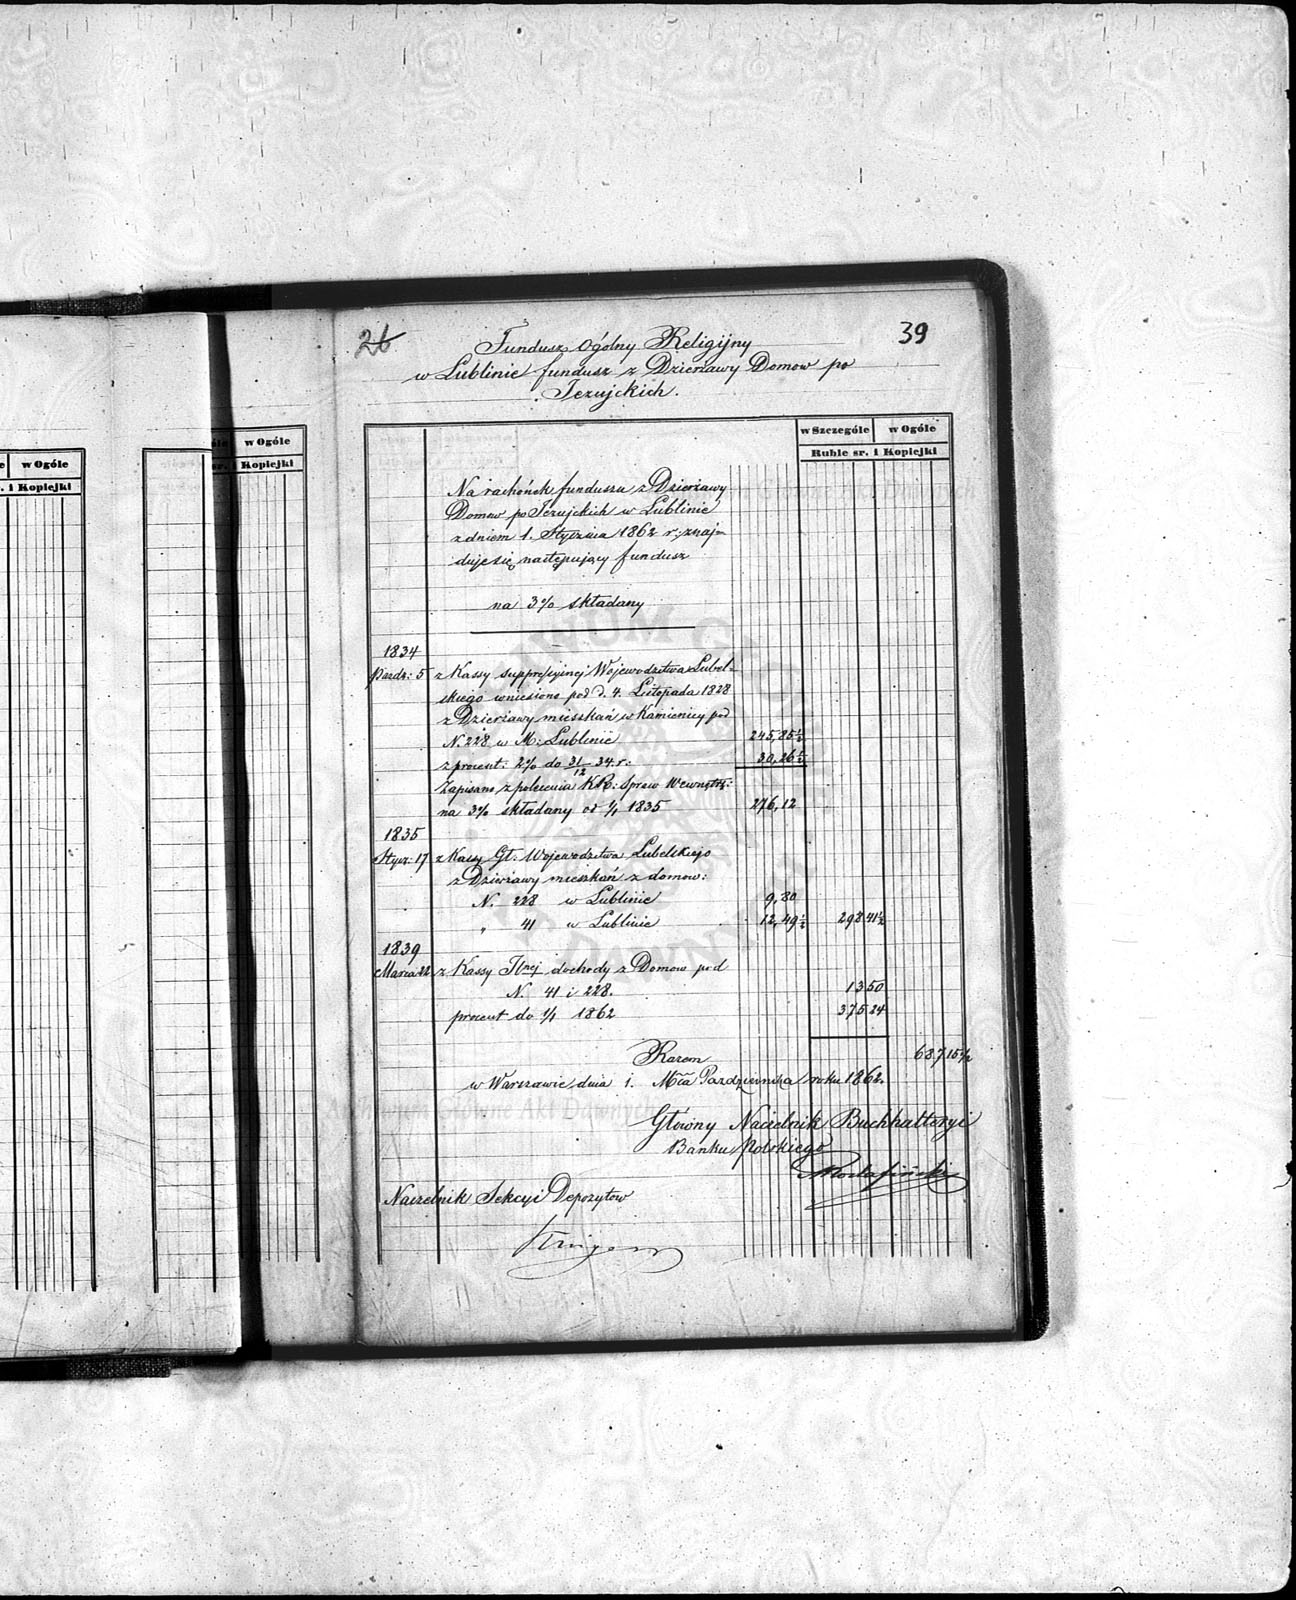 26
39
Fundusz Ogólny Religijny
w Lublinie fundusz z Dzierżawy Domow po
Jezujckich.
w Ogóle
. i Kopiejki
w Ogóle
sr. i Kopiejki
w Szczególe w Ogóle
Ruble sr. i Kopiejki
Na rachónek funduszu z Dzierżawy
Domow po Jezujckich w Lublinie
z dniem 1. Stycznia 1862 r. znaj-
duje się następujący fundusz
na 3% składany
1834
Pazdz: 5 z Kassy suppressyjnej Województwa Lubel-
skiego wniesiono pod d. 4. Listopada 1828
z Dzierżawy mieszkań w Kamienicy pod
N. 228 w M: Lublinie 245,85½
z procent: 2% do 31/12 34. r: 30,26½
Zapisano z polecenia KR: Spraw Wewnętrz:
na 3% składany od 1/1 1835 276,12
1835
Stycz: 17 z Kassy Gł: Województwa Lubelskiego
z Dzierżawy mieszkań z domow:
N. 228 w Lublinie 9,80
„ 41 w Lublinie 12,49½ 298 41½
1839
Marca 22 z Kassy Tłnej dochody z Domow pod
N. 41 i 228. 13 50
procent do 1/1 1862 375 24
Razem 687 15½
w Warszawie dnia 1. Mca Pazdziernika roku 1862.
Główny Naczelnik Buchhalteryi
Banku Polskiego
Naczelnik Sekcyi Depozytow
Archiwum Główne Akt Dawnych